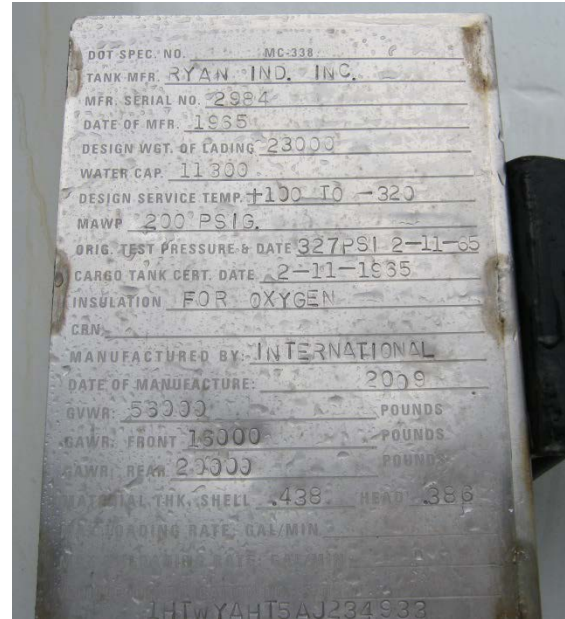 DOT SPEC. NO. MC-338
TANK MFR. RYAN IND. INC.
MFR. SERIAL NO. 2984
DATE OF MFR. 1965
DESIGN WGT. OF LADING 23000
WATER CAP. 11300
DESIGN SERVICE TEMP. +100 TO -320
MAWP 200 PSIG.
ORIG. TEST PRESSURE & DATE 327PSI 2-11-65
CARGO TANK CERT. DATE 2-11-1965
INSULATION FOR OXYGEN
CRN:
MANUFACTURED BY: INTERNATIONAL
DATE OF MANUFACTURE: 2009
GVWR: 53000 POUNDS
GAWR: FRONT 16000 POUNDS
GAWR: REAR 20000 POUNDS
MATERIAL THK. SHELL .438 HEAD .386
MAX LOADING RATE, GAL/MIN
1HTWYAHT5AJ234933